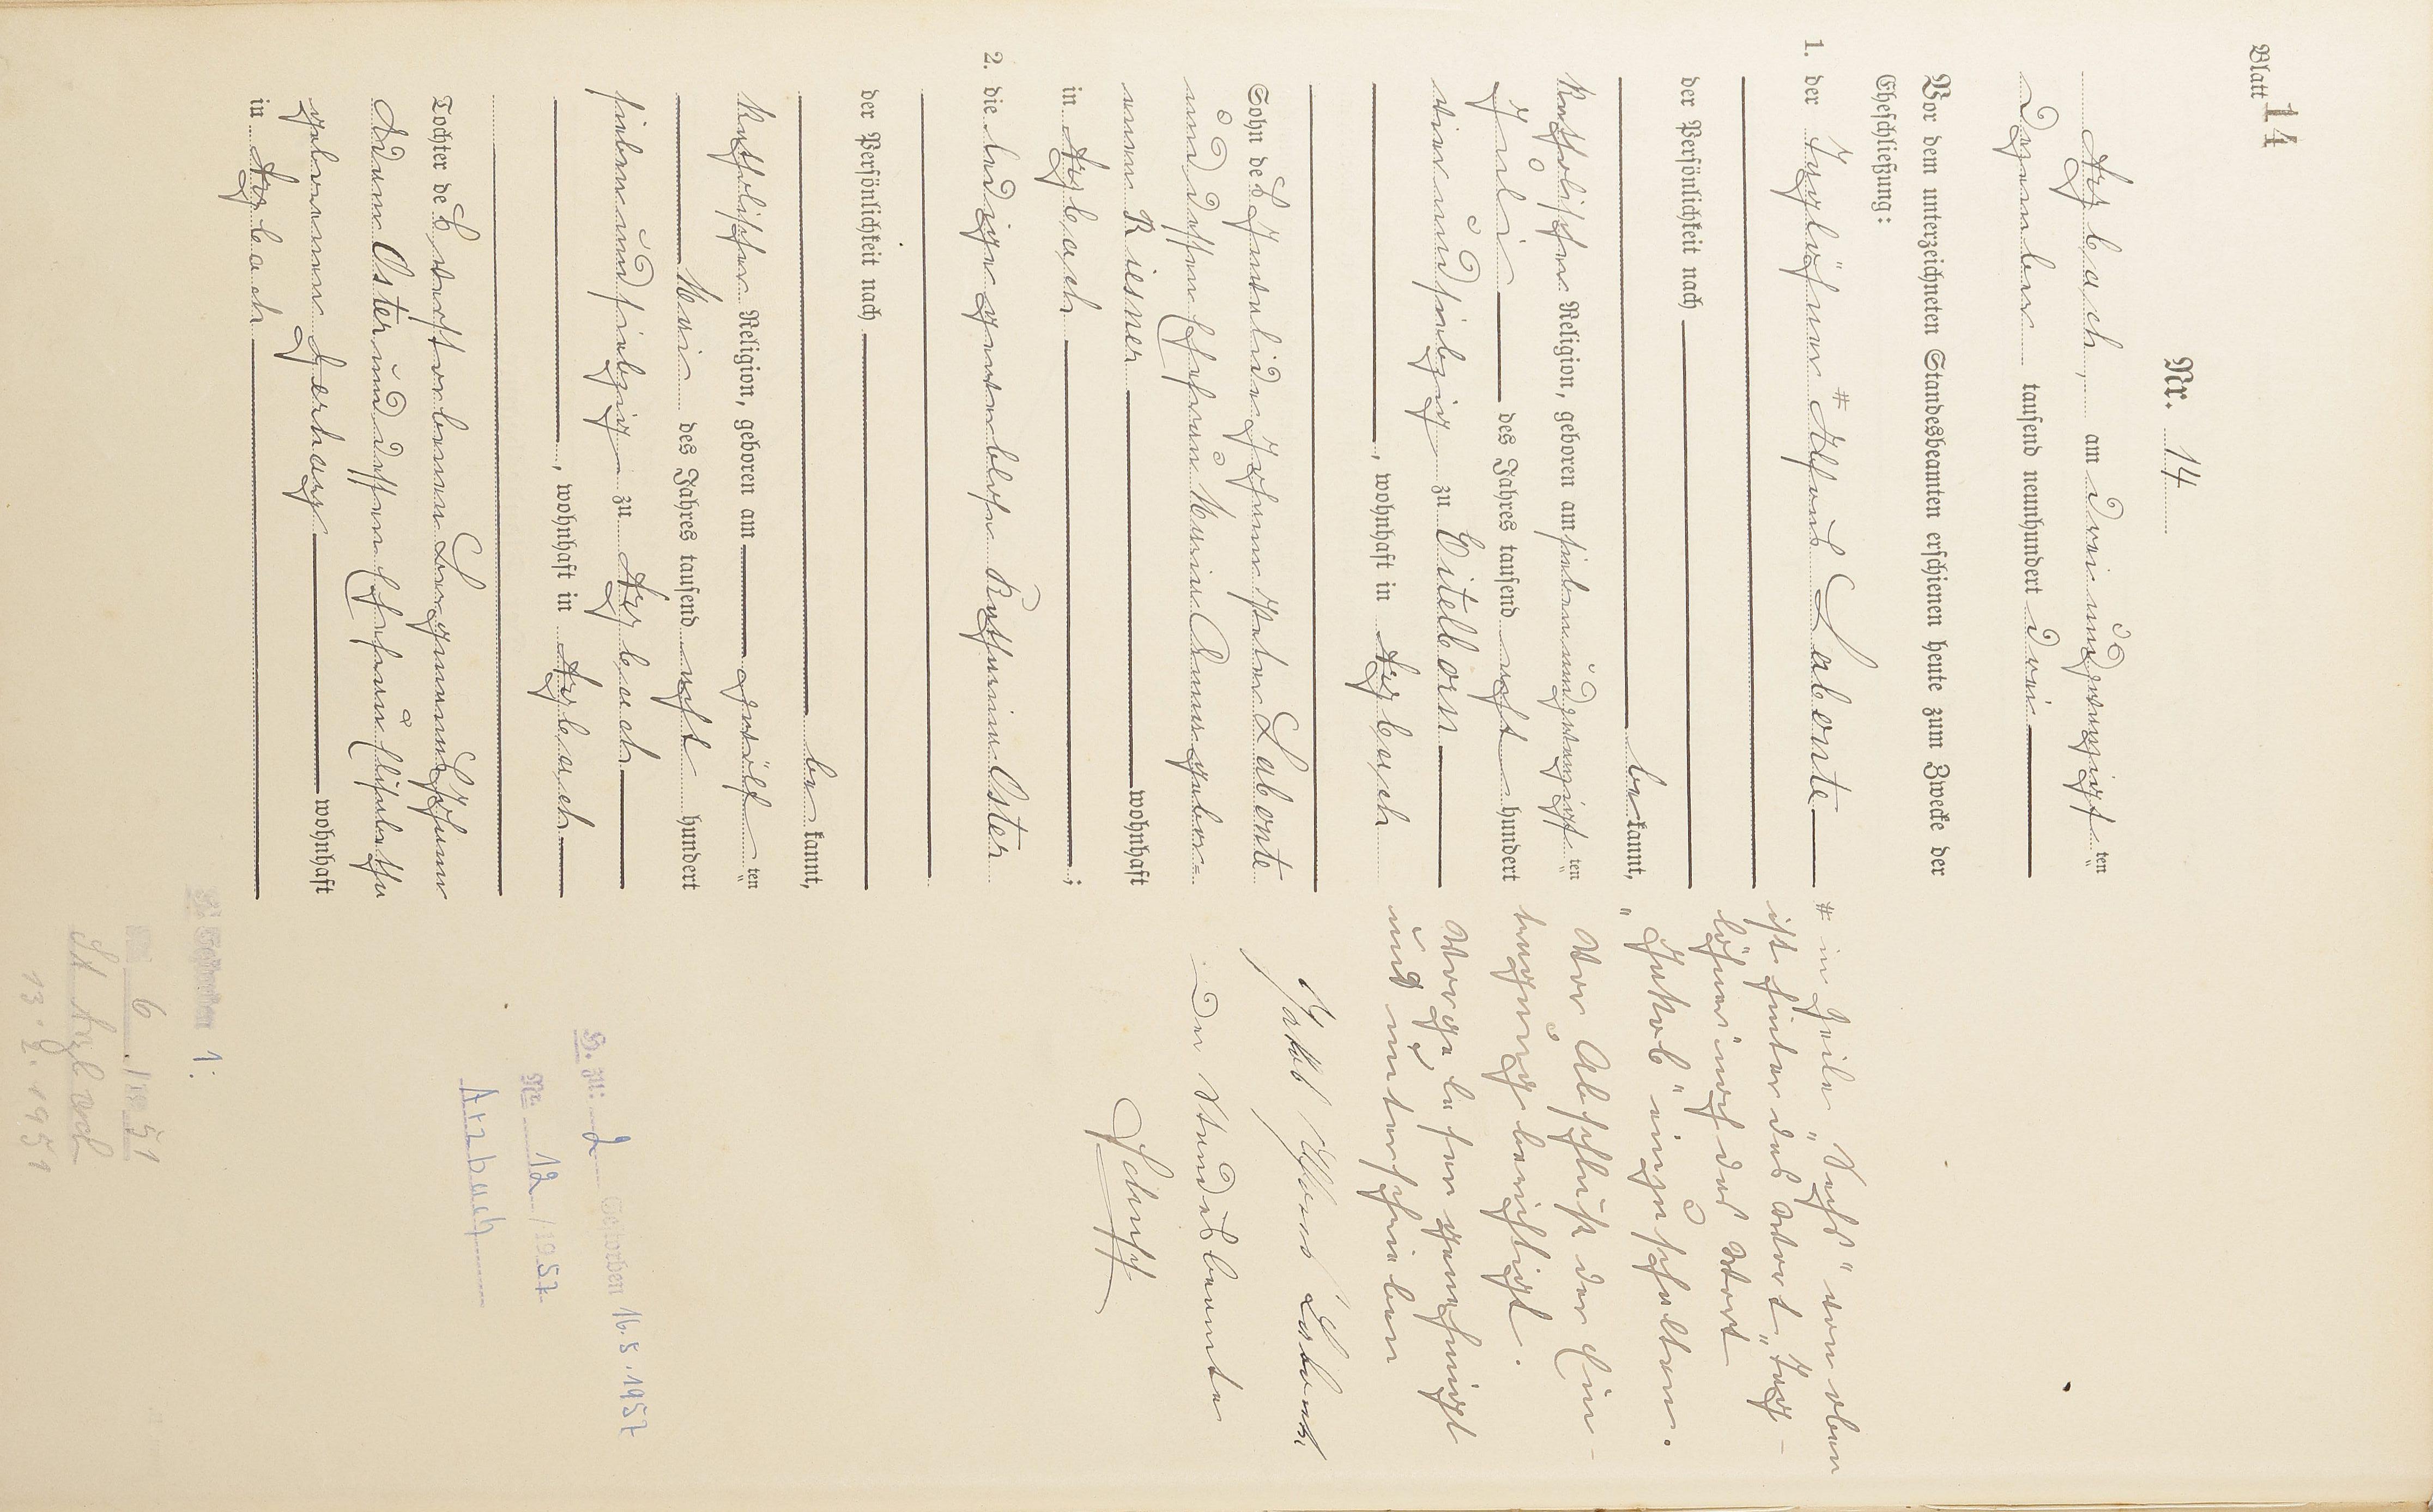 Blatt 14
Nr. 14
Arzbach, am drei und zwanzigsten
Dezember tausend neunhundert drei
Vor dem unterzeichneten Standesbeamten erschienen heute zum Zwecke der
Eheschließung:
1. der Taglöhner # Alfons Labonte
der Persönlichkeit nach
bekannt,
katholischer Religion, geboren am sieben und zwanzigsten
Juli des Jahres tausend acht hundert
vier und siebzig zu Eitelborn
, wohnhaft in Arzbach
Sohn des Invaliden Johann Peter Labonte
und dessen Ehefrau Maria Anna gebor=
enen Riesner wohnhaft
in Arzbach ;
2. die ledige gewerblose Katharina Oster
der Persönlichkeit nach
bekannt,
katholischer Religion, geboren am zwölften
Mai des Jahres tausend acht hundert
sieben und siebzig zu Arzbach
, wohnhaft in Arzbach
Tochter des verstorbenen Bergmanns Johann
Adam Oster und dessen Ehefrau Elisabetha
geborenen Gerharz wohnhaft
in Arzbach
# in Zeile "sechs" von oben
ist hinter das Wort "Tag-
löhner" noch das Wort
"Jakob" einzuschalten.
Vor Abschluß der Ein-
tragung berichtigt.
Vorgelesen genehmigt
und unterschrieben
Jakob Alfons Labonte
Der Standesbeamte
Schupp
S. zu: 2 Gestorben 16.5.1957
Nr. 12/1957
Arzbach
Gestorben 1:
6/1951
St Arzbach